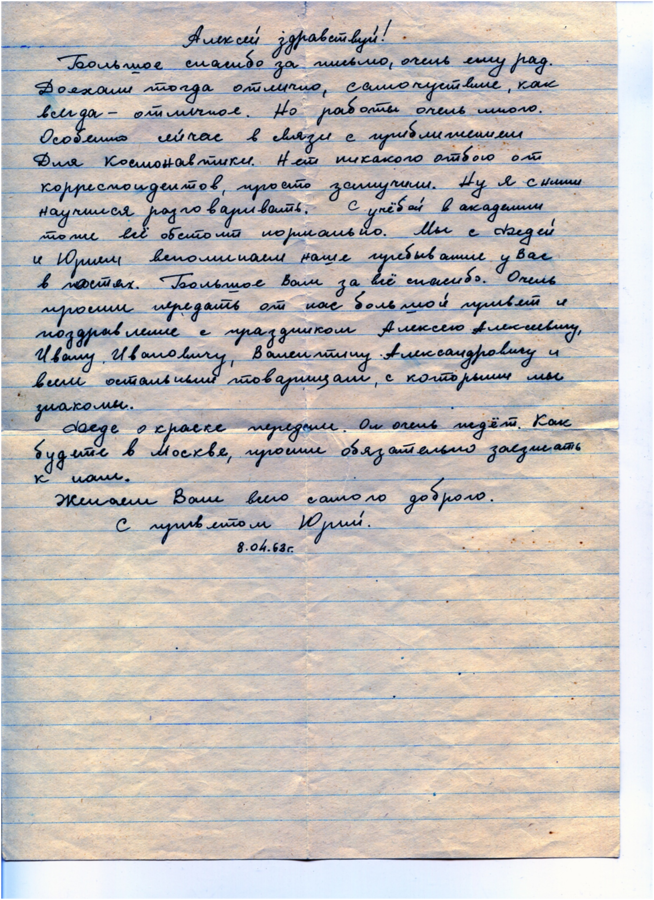 Алексей здравствуй!
Большое спасибо за письмо, очень ему рад.
Доехали тогда отлично, самочуствие, как
всегда – отличное. Но работы очень много.
Особенно сейчас в связи с приближением
Дня Космонавтики. Нет никакого отбою от
корреспондентов, просто замучили. Ну я с ними
научился разговаривать. С учёбой в академии
тоже всё обстоит нормально. Мы с Федей
и Юрием вспоминаем наше пребывание у Вас
в гостях. Большое Вам за всё спасибо. Очень
просим передать от нас большой привет и
поздравление с праздником Алексею Алексеевичу,
Ивану Ивановичу, Валентину Александровичу и
всем остальным товарищам, с которыми мы
знакомы.
Феде о краске передам. Он очень ждёт. Как
будете в Москве, просим обязательно заезжать
к нам.
Желаем Вам всего самого доброго.
С приветом Юрий.
8.04.63г.